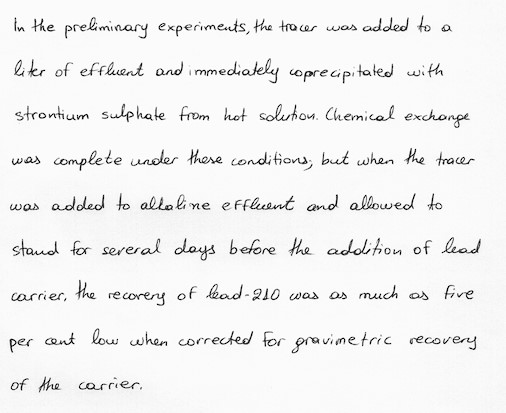 In the preliminary experiments, the tracer was added to a
liter of effluent and immediately coprecipitated with
strontium sulphate from hot solution. Chemical exchange
was complete under these conditions, but when the tracer
was added to alkaline effluent and allowed to
stand for several days before the addition of lead
carrier, the recovery of lead-210 was as much as five
per cent low when corrected for gravimetric recovery
of the carrier.